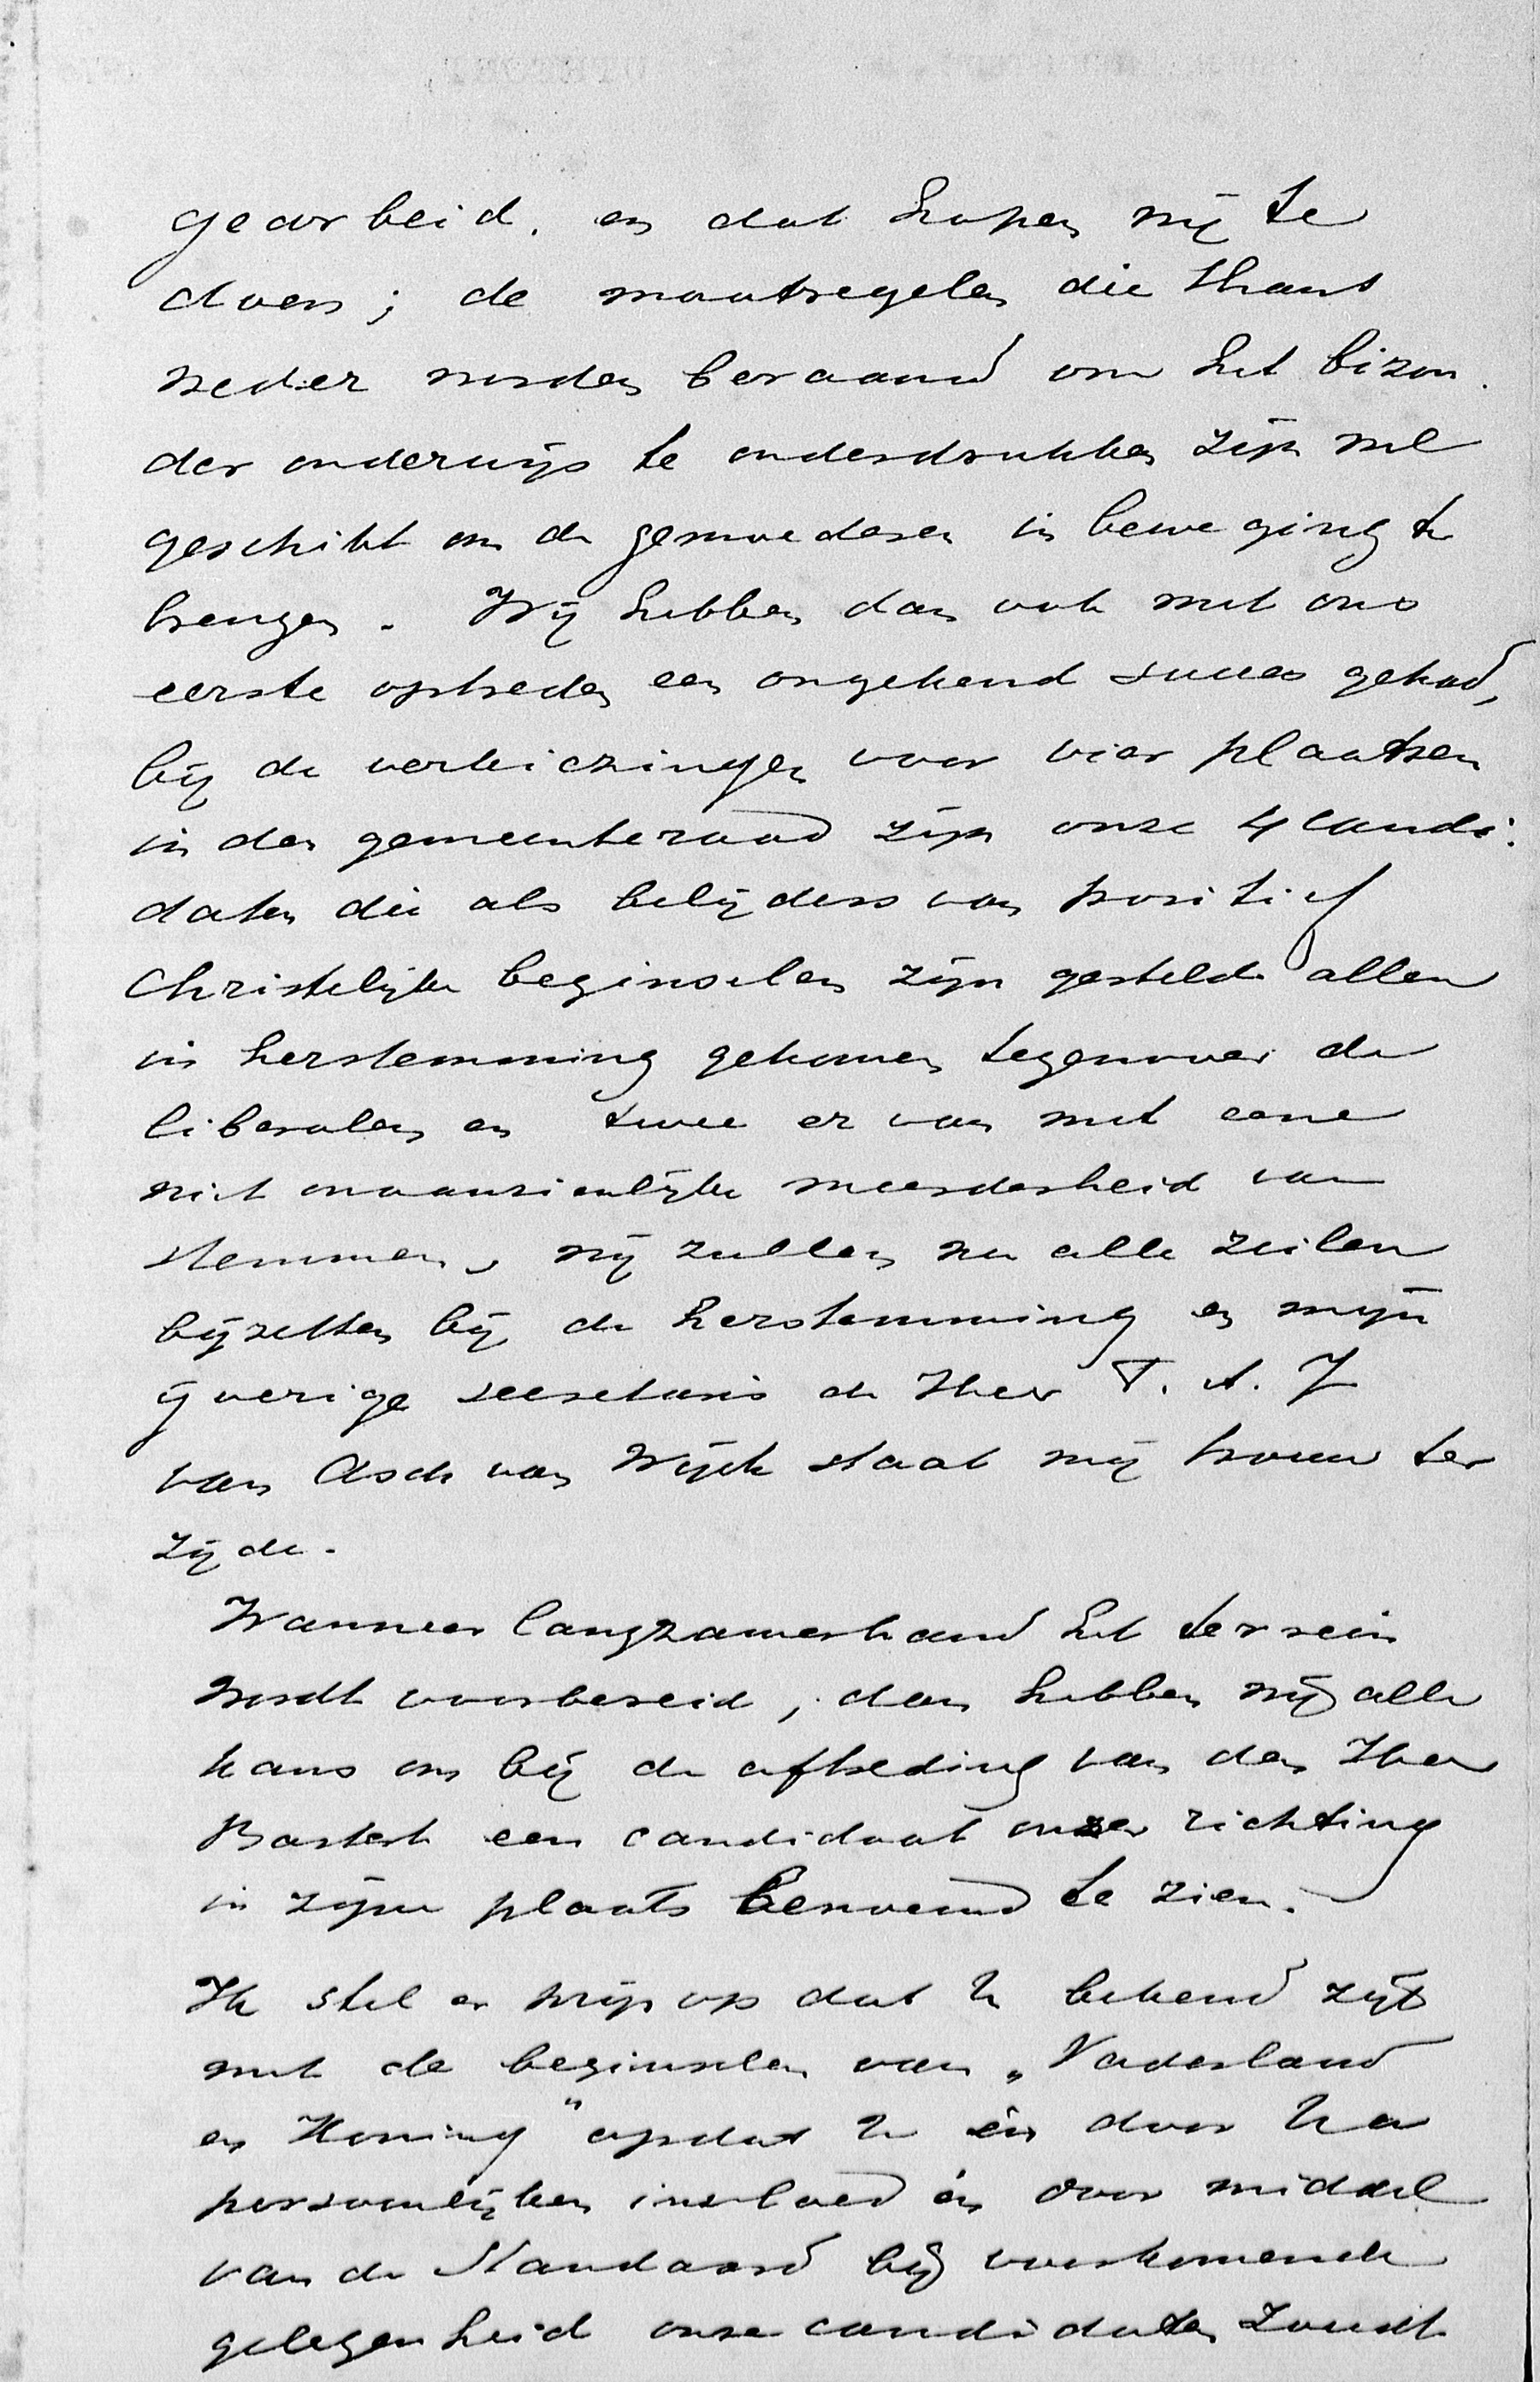 gearbeid. en dat hopen wij te
doen; de maatregelen die thans
weder worden beraamd om het bizon
der onderwijs te onderdrukken zijn wel
geschikt om de gemoederen in beweging te
brengen. Wij hebben dan ook met ons
eerste optreden een ongekend succes gehad,
bij de verkiezingen voor vier plaatsen
in den gemeenteraad zijn onze 4 candi:
daten die als belijders van positief
Christelijke beginselen zijn gesteld allen
in herstemming gekomen tegenover de
liberalen en twee er van met eene
niet onaanzienlijke meerderheid van
stemmen, wij zullen nu alle zeilen
bijzetten bij de herstemming en mijn
ijverige secretaris de Heer T. A. J
van Asch van Wijck staat mij trouw ter
zijde.
Wanneer langzamerhand het terrein
wordt voorbereid, dan hebben wij alle
kans om bij de aftreding van den Heer
Bastert een candidaat onzer richting
in zijne plaats benoemd te zien.
Ik stel er prijs op dat U bekend zijt
met de beginselen van „Vaderland
en Koning" opdat U én door Uw
persoonlijken invloed én door middel
van de Standaard bij voorkomende
gelegenheid onze candidaten zoudt